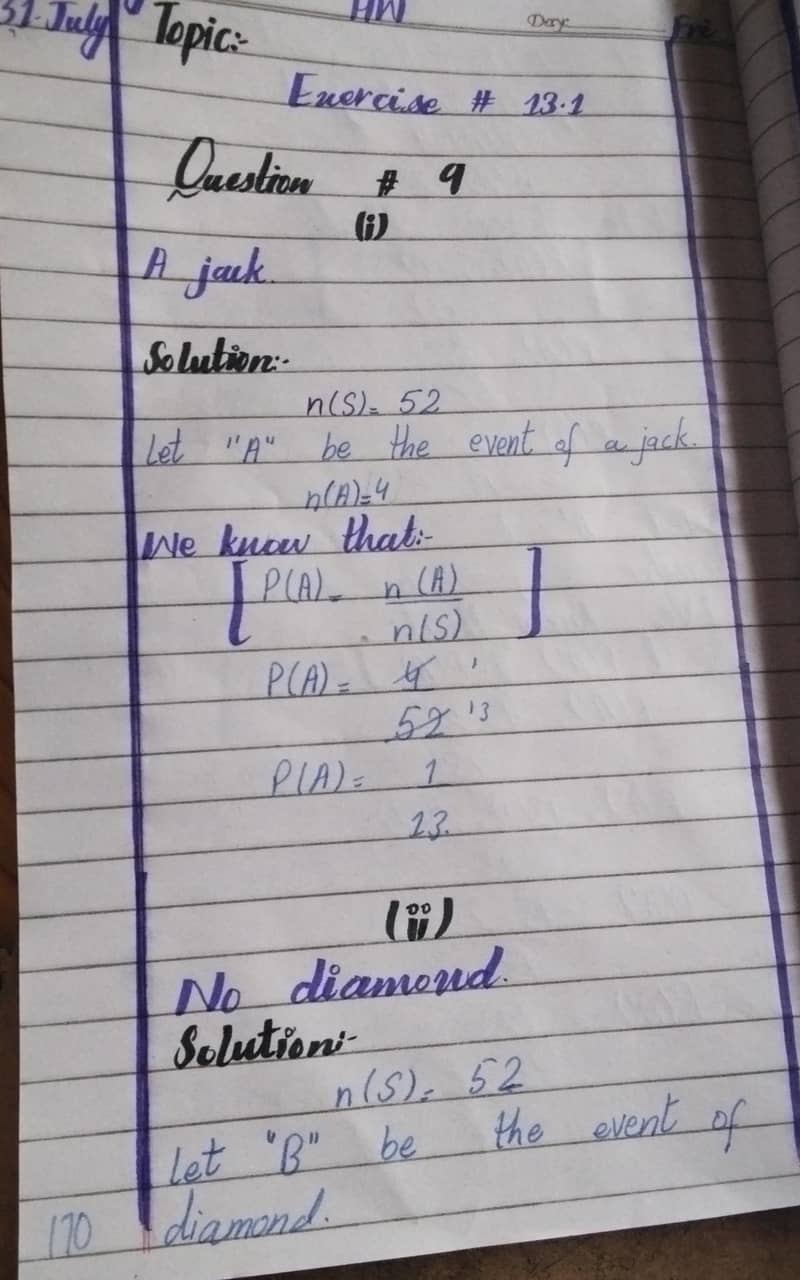 31-July
HW
Day:
Fri
Topic:-
Exercise # 13.1
Question # 9
(i)
A jack.
Solution:-
n(S)= 52
Let "A" be the event of a jack.
n(A)=4
We know that:-
[P(A)= n(A)
n(S)]
P(A)= 4 1
52 13
P(A)= 1
13.
(ii)
No diamond.
Solution:-
n(S)= 52
Let "B" be the event of
170 diamond.